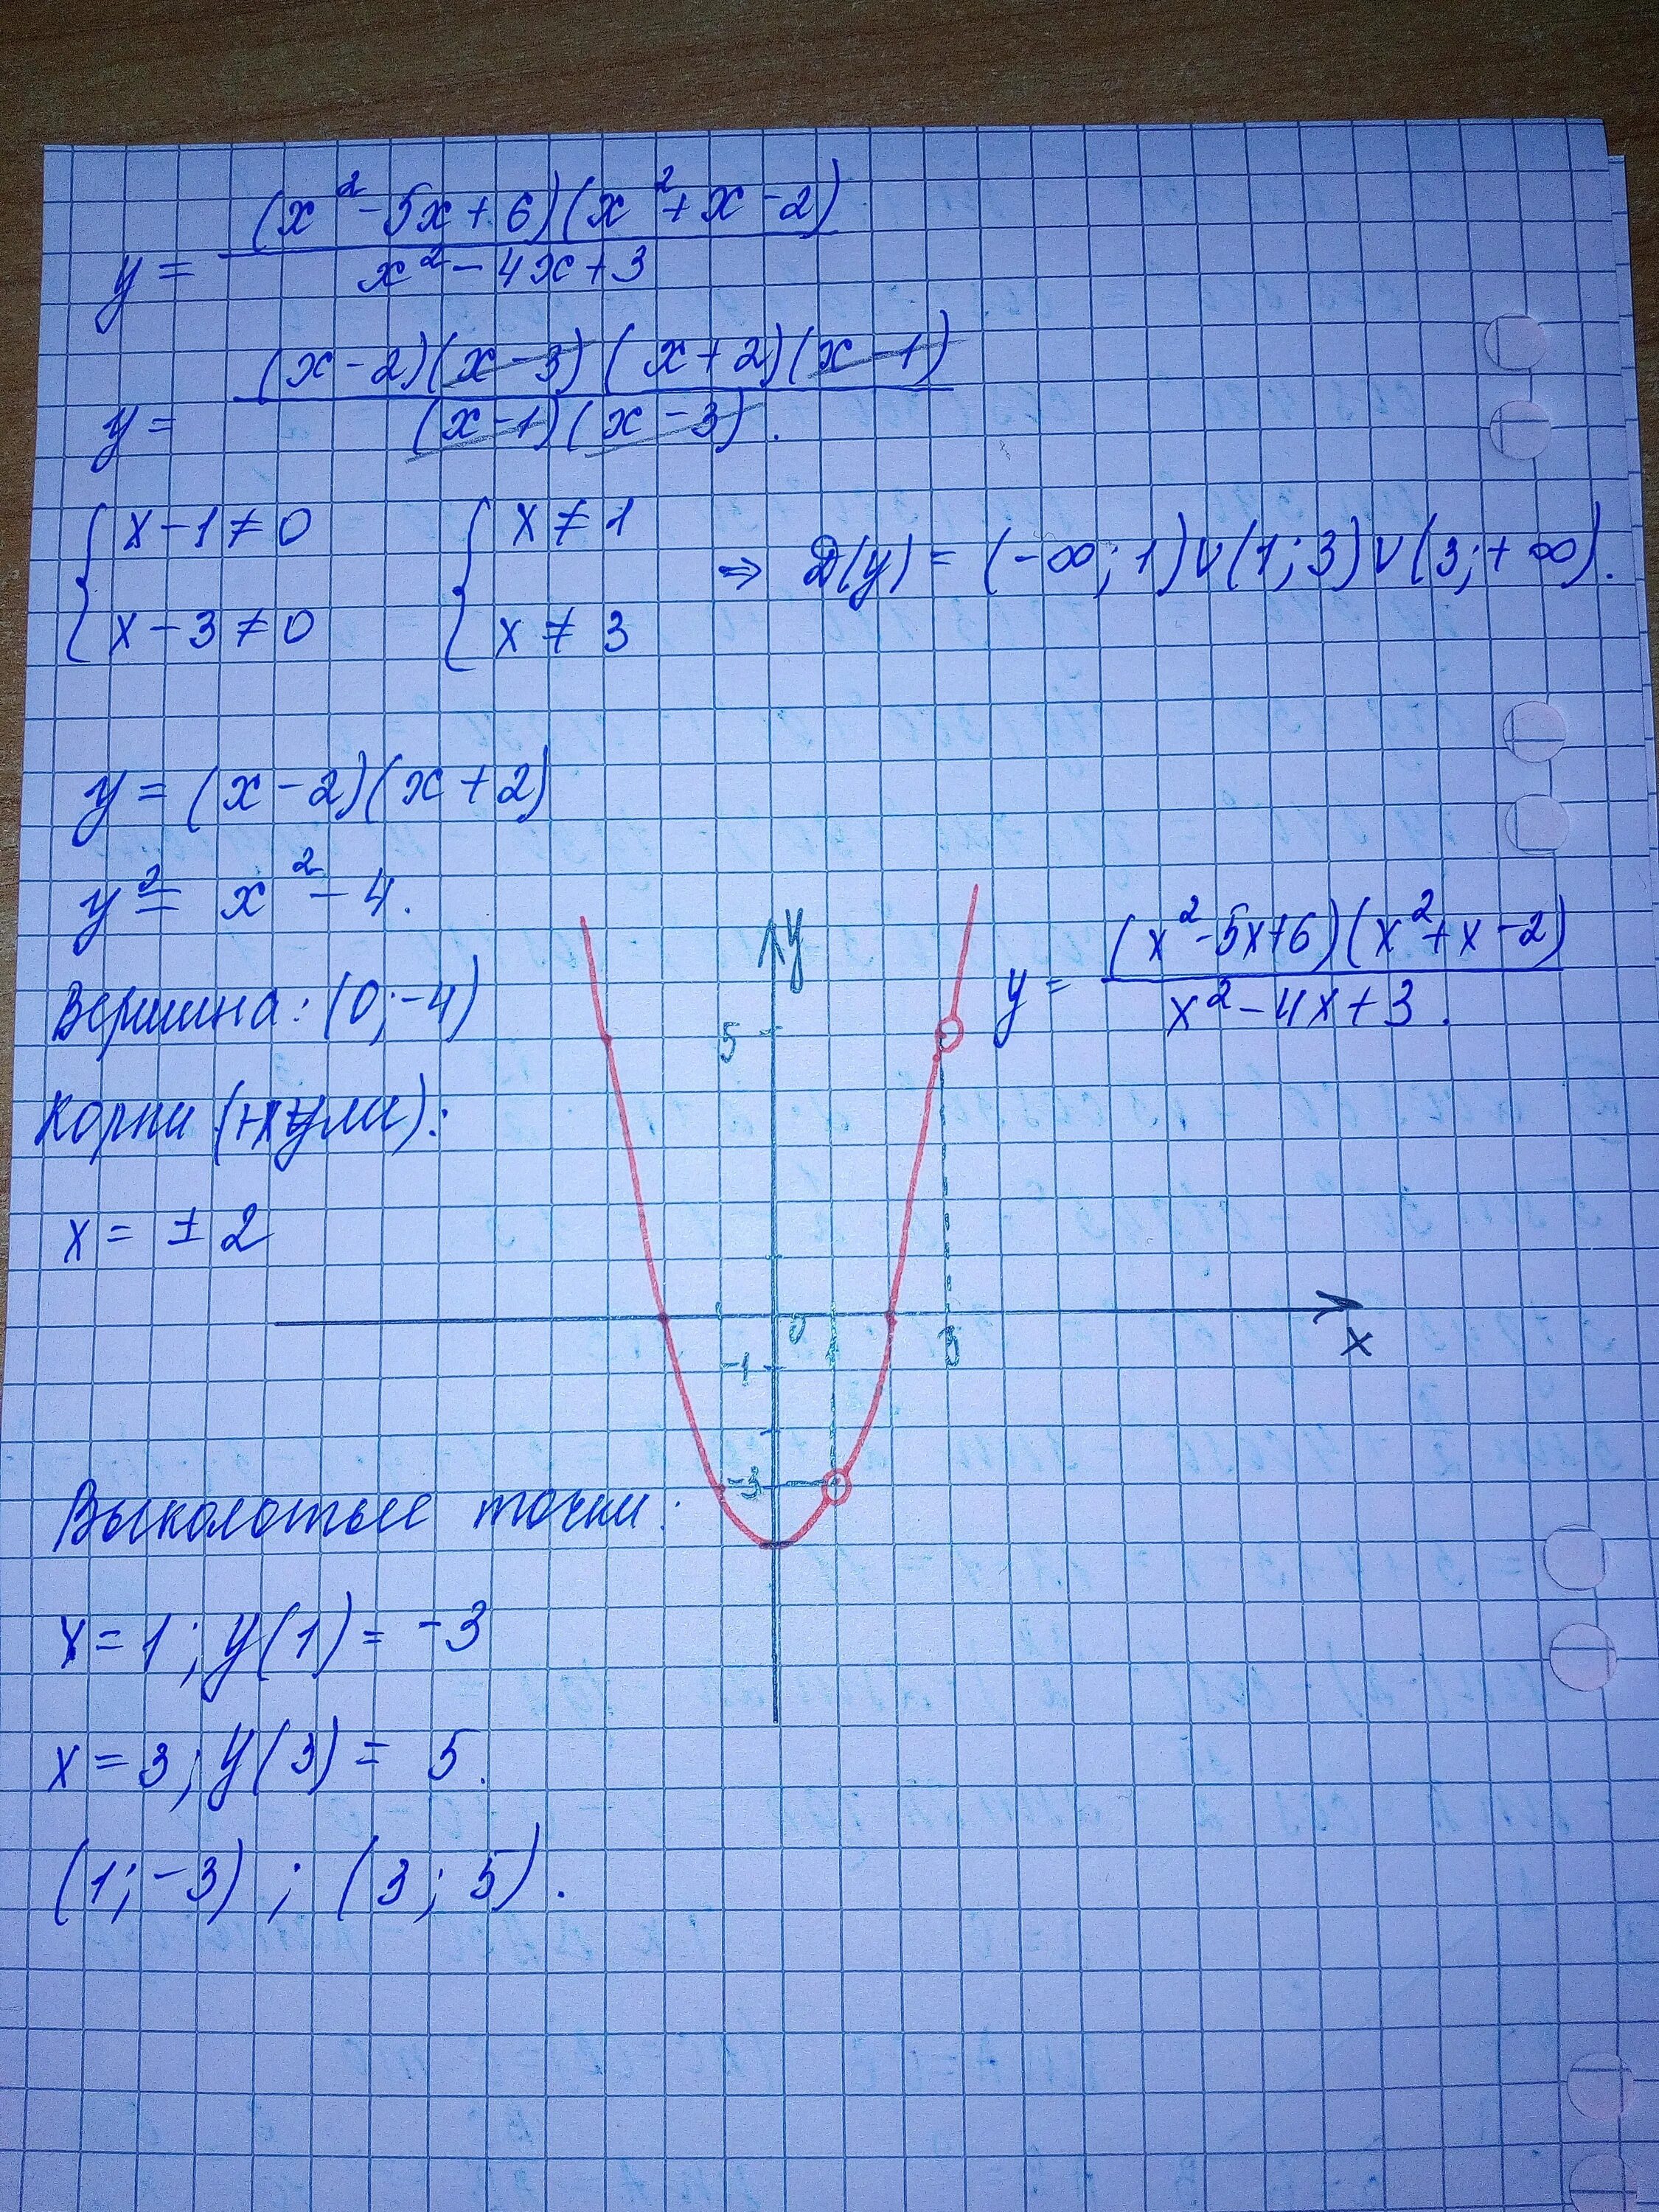 y = (x² - 5x + 6)(x² + x - 2) / x² - 4x + 3
y = (x - 2)(x - 3)(x + 2)(x - 1) / (x - 1)(x - 3).
{ x - 1 ≠ 0 { x ≠ 1 ⇒ D(y) = (-∞; 1)∪(1; 3)∪(3; +∞).
x - 3 ≠ 0 x ≠ 3
y = (x - 2)(x + 2)
y² = x² - 4.
Вершина: (0; -4)
Корни (нули):
x = ± 2
y
5
y = (x² - 5x + 6)(x² + x - 2) / x² - 4x + 3.
0
1
3
x
-1
-3
Выколотые точки:
x = 1; y(1) = -3
x = 3; y(3) = 5.
(1; -3) ; (3; 5).